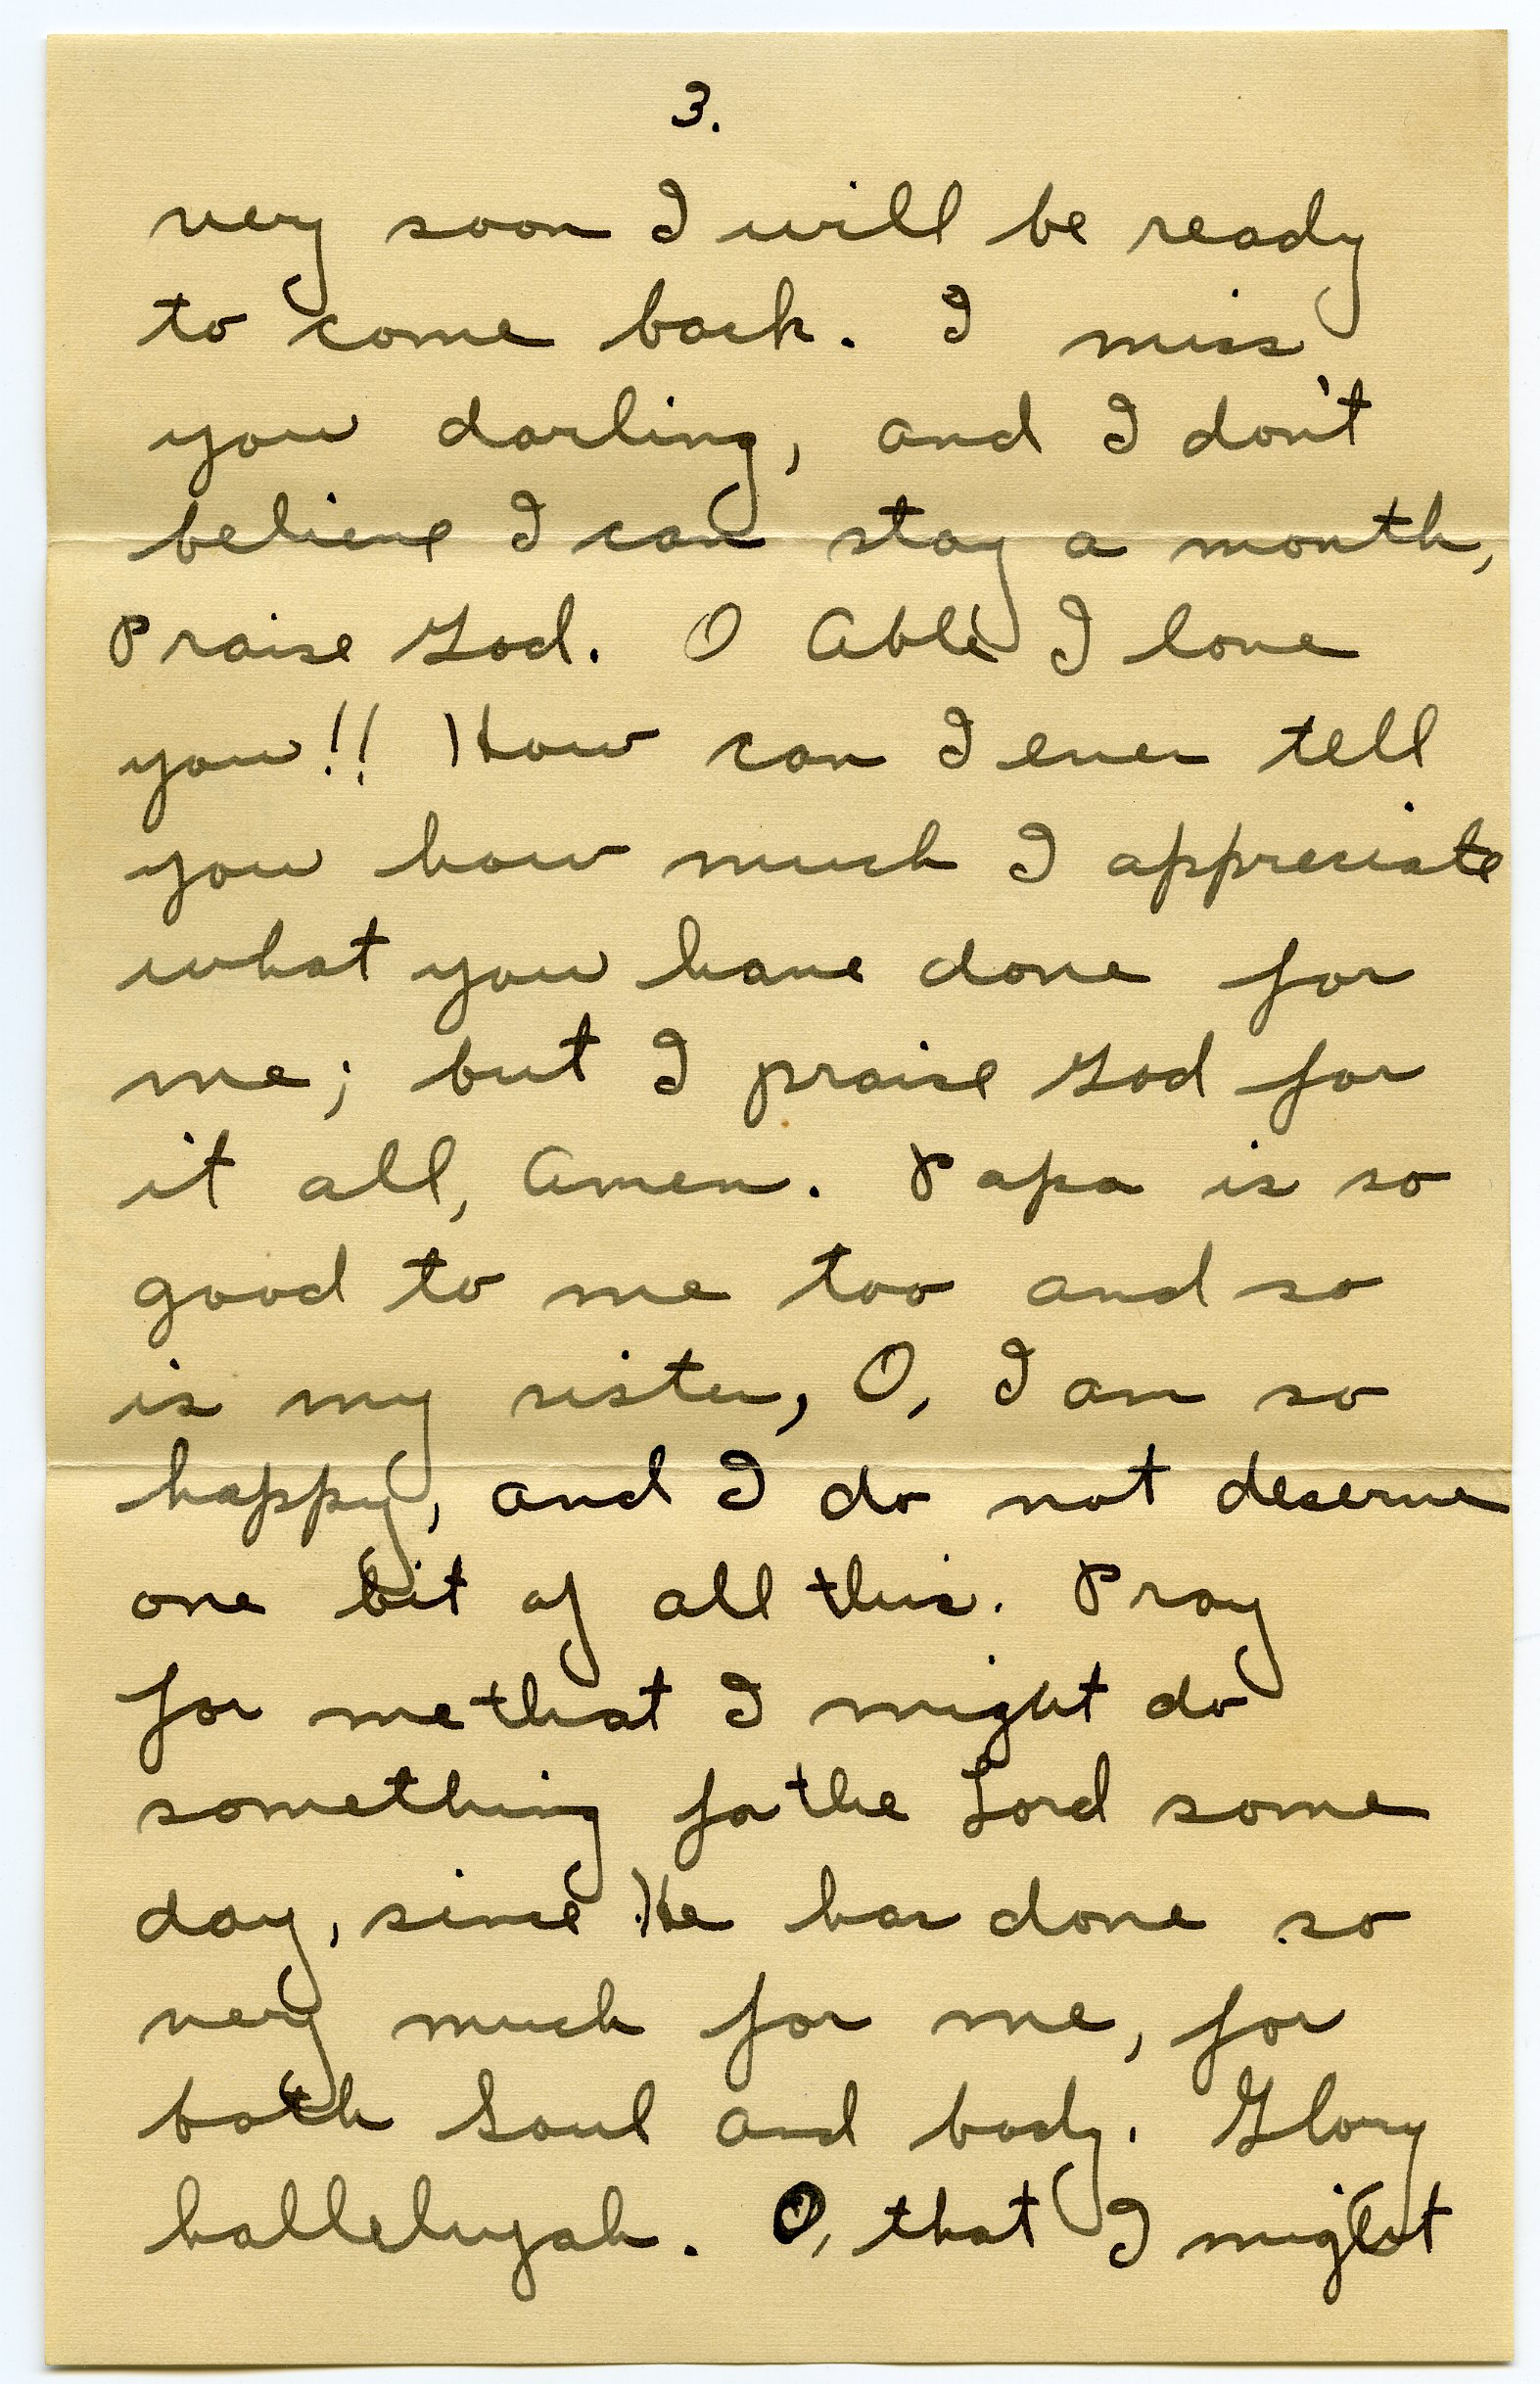 3.
very soon I will be ready
to come back. I miss
you darling, and I don't
believe I can stay a month,
Praise God. O Able I love
you!! How can I ever tell
you how much I appreciate
what you have done for
me; but I praise God for
it all, Amen. Papa is so
good to me too and so
is my sister, O, I am so
happy, and I do not deserve
one bit of all this. Pray
for me that I might do
something for the Lord some
day, since He has done so
very much for me, for
both Soul and body. Glory
hallelujah. O, that I might